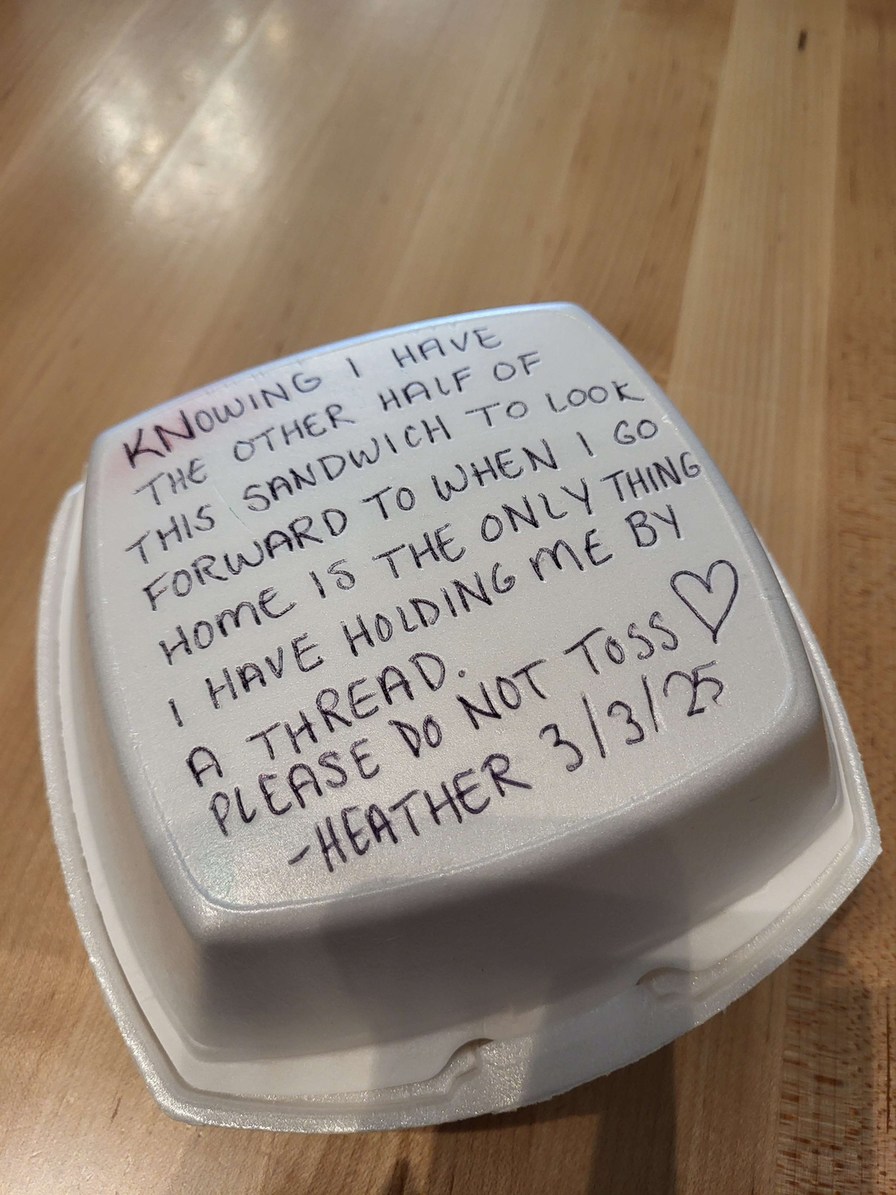 KNOWING I HAVE
THE OTHER HALF OF
THIS SANDWICH TO LOOK
FORWARD TO WHEN I GO
HOME IS THE ONLY THING
I HAVE HOLDING ME BY
A THREAD.
PLEASE DO NOT TOSS ♡
-HEATHER 3/3/25